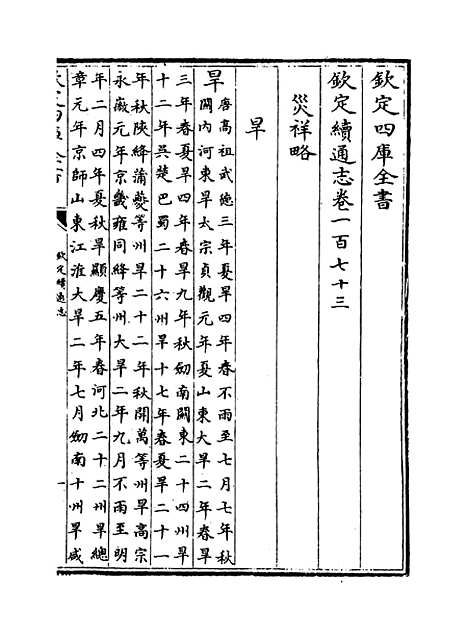 欽定四庫全書
欽定續通志卷一百七十三
災祥略
旱
旱
唐高祖武德三年夏旱四年春不雨至七月七年秋
關内河東旱太宗貞觀元年夏山東大旱二年春旱
三年春夏旱四年春旱九年秋劒南關東二十四州旱
十二年吳楚巴蜀二十六州旱十七年春夏旱二十一
年秋陜絳蒲夔等州旱二十二年秋開萬等州旱高宗
永徽元年京畿雍同絳等州大旱二年九月不雨至明
年二月四年夏秋旱顯慶五年春河北二十二州旱總
章元年京師山東江淮大旱二年七月劒南十州旱咸
欽定續通志
一